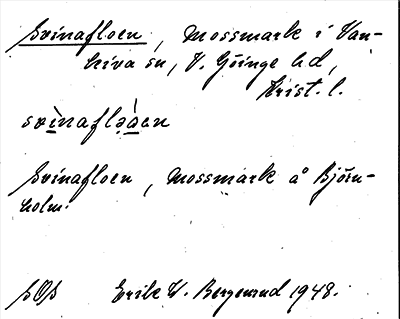 Svinafloen, Mossmark i Van-
kiva sn, V. Göinge hd,
Krist. l.
svinafloaen
Svinafloen, Mossmark å Björn-
holm.
SOS Erik W. Bergemrud 1948.